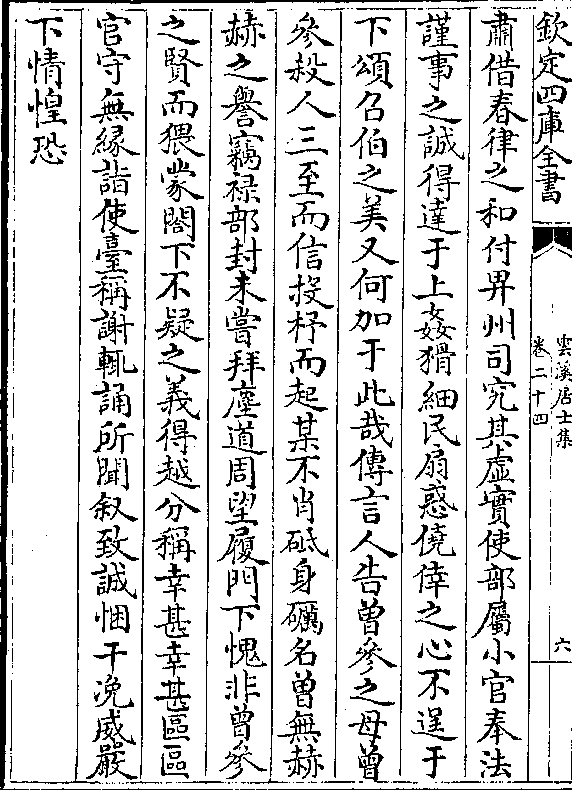 欽定四庫全書
雲溪居士集
卷二十四
六
肅借春律之和付畀州司究其虛實使部屬小官奉法
謹事之誠得達于上姦猾細民扇惑僥倖之心不逞于
下頌召伯之美又何加于此哉傳言人告曾參之母曾
參殺人三至而信投杼而起某不肖砥身礪名曾無赫
赫之譽竊禄部封未嘗拜塵道周望履門下愧非曾參
之賢而猥蒙閤下不疑之義得越分稱幸甚幸甚區區
官守無緣詣使臺稱謝輒誦所聞叙致誠悃干冼威嚴
下情惶恐